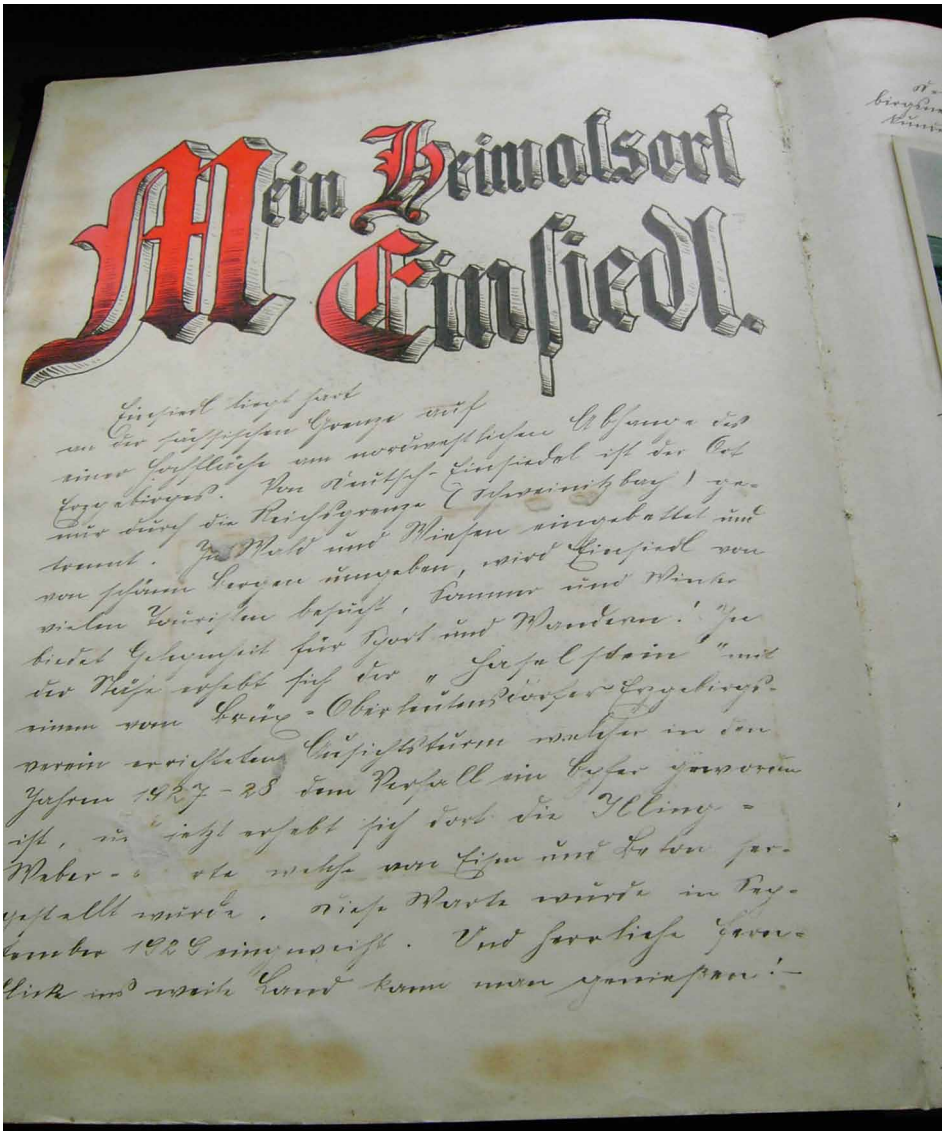 Mein Heimatsort
Einsiedl.
Einsiedl liegt hart
an der sächsischen Grenze auf
einer Hochfläche am nordwestlichen Abhange des
Erzgebirges. Von Deutsch-Einsiedel ist der Ort
nur durch die Reichsgrenze (Schweinitzbach) ge-
trennt. In Wald und Wiesen eingebettet und
von schönen Bergen umgeben, wird Einsiedl von
vielen Touristen besucht, Sommer und Winter
bietet Gelegenheit für Sport und Wandern! In
der Nähe erhebt sich der „Haselstein" mit
einem vom Brüx-Oberleutensdorfer Erzgebirgs-
verein errichteten Aussichtsturm welcher in den
Jahren 1927-28 dem Verfall ein Opfer geworden
ist, jetzt erhebt sich dort die Illing-
Weber- welche von Eisen und Beton her-
gestellt wurde. Diese Warte wurde in Sep-
tember 1929 eingeweiht. Und herrliche Fern-
blicke ins weite Land kann man genießen!-
birgsve